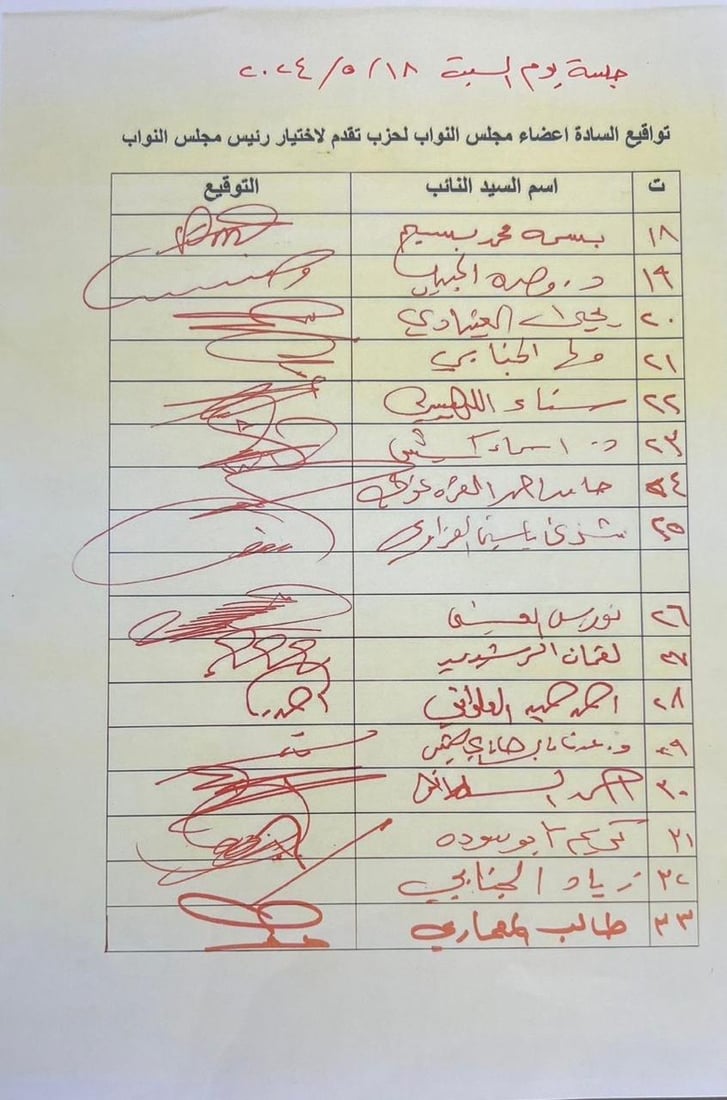 جلسة يوم السبت ٢٠٢٤/٥/١٨
تواقيع السادة اعضاء مجلس النواب لحزب تقدم لاختيار رئيس مجلس النواب
ت اسم السيد النائب التوقيع
١٨ بسمه محمد بسيم
١٩ د.
٢٠ يحيى العيثاوي
٢١ الجنابي
٢٢ سناء اللهيبي
٢٣ د. اسماء
٢٤
٢٥ ياسين العزاوي
٢٦ نورس العيسى
٢٧ لقمان الرشيدي
٢٨ احمد حميد العلواني احمد
٢٩ د. عدنان
٣٠ احمد السلماني
٣١ كريم ابو سوده
٣٢ زياد الجنابي
٣٣ طالب المعماري